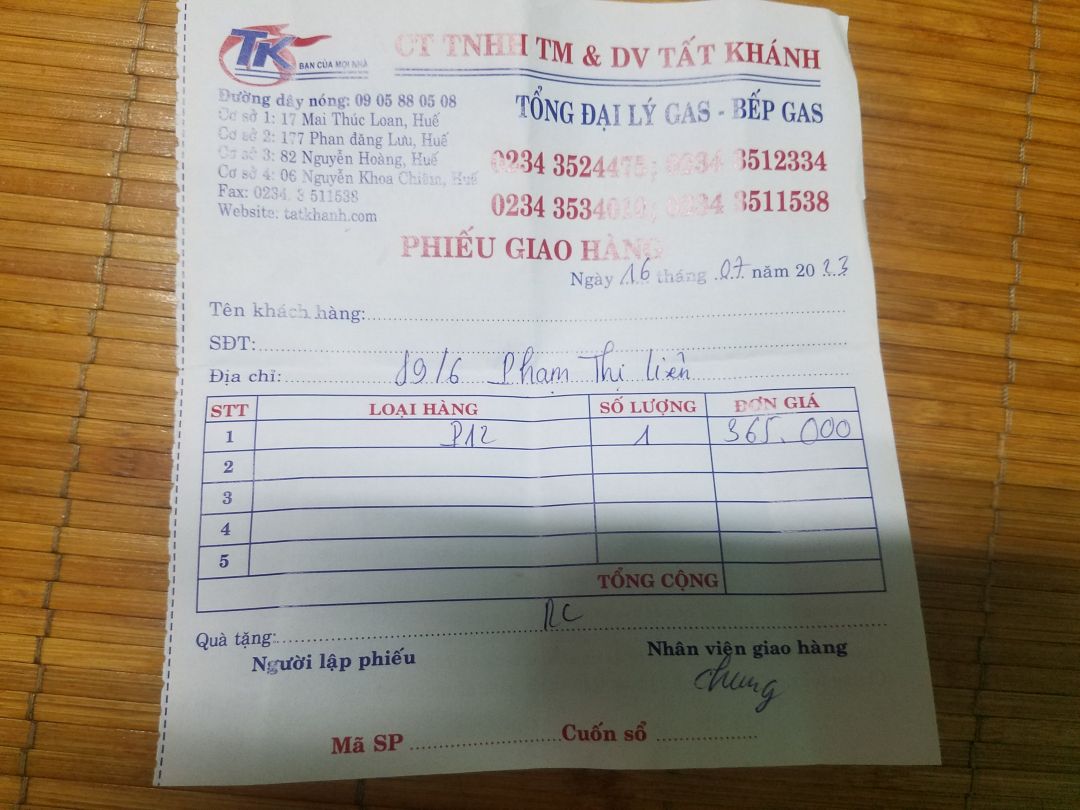 TK
BẠN CỦA MỌI NHÀ
CT TNHH TM & DV TẤT KHÁNH
Đường dây nóng: 09 05 88 05 08
Cơ sở 1: 17 Mai Thúc Loan, Huế
Cơ sở 2: 177 Phan đăng Lưu, Huế
Cơ sở 3: 82 Nguyễn Hoàng, Huế
Cơ sở 4: 06 Nguyễn Khoa Chiêm, Huế
Fax: 0234. 3 511538
Website: tatkhanh.com
TỔNG ĐẠI LÝ GAS - BẾP GAS
0234 3524475; 0234 3512334
0234 3534010; 0234 3511538
PHIẾU GIAO HÀNG
Ngày 16 tháng 07 năm 2023
Tên khách hàng:
SĐT:
Địa chỉ: 89/6 Phạm Thị Liên
STT LOẠI HÀNG SỐ LƯỢNG ĐƠN GIÁ
1 P12 1 365.000
2
3
4
5
TỔNG CỘNG
Quà tặng: RC
Người lập phiếu Nhân viên giao hàng
chung
Mã SP Cuốn sổ